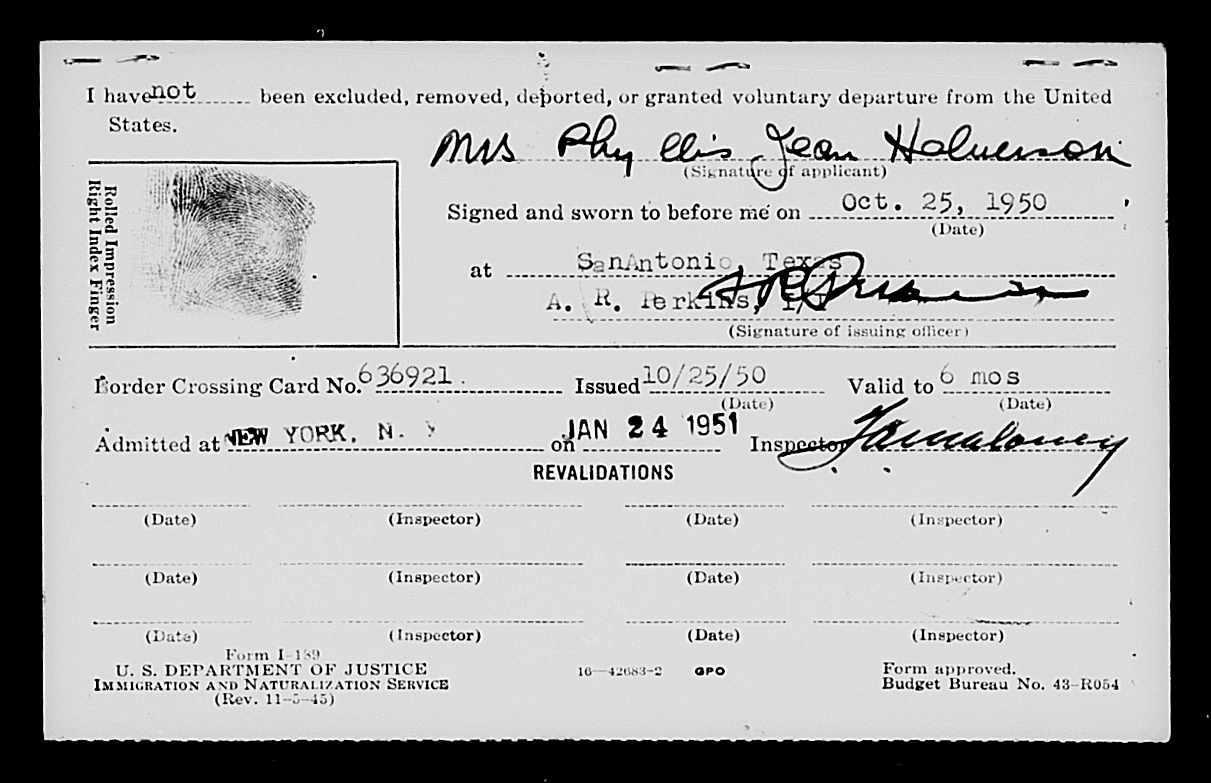 I have not been excluded, removed, deported, or granted voluntary departure from the United
States.
Mrs Phyllis Jean Halverson
(Signature of applicant)
Rolled Impression
Right Index Finger
Signed and sworn to before me on Oct. 25, 1950
(Date)
at SanAntonio, Texas
A. R. Perkins,
(Signature of issuing officer)
Border Crossing Card No. 636921. Issued 10/25/50 Valid to 6 mos
(Date) (Date)
Admitted at NEW YORK, N. Y on JAN 24 1951 Inspector
REVALIDATIONS
(Date) (Inspector) (Date) (Inspector)
(Date) (Inspector) (Date) (Inspector)
(Date) (Inspector) (Date) (Inspector)
Form I-189
U. S. DEPARTMENT OF JUSTICE 16—42683-2 GPO Form approved.
IMMIGRATION AND NATURALIZATION SERVICE Budget Bureau No. 43-R054
(Rev. 11-5-45)